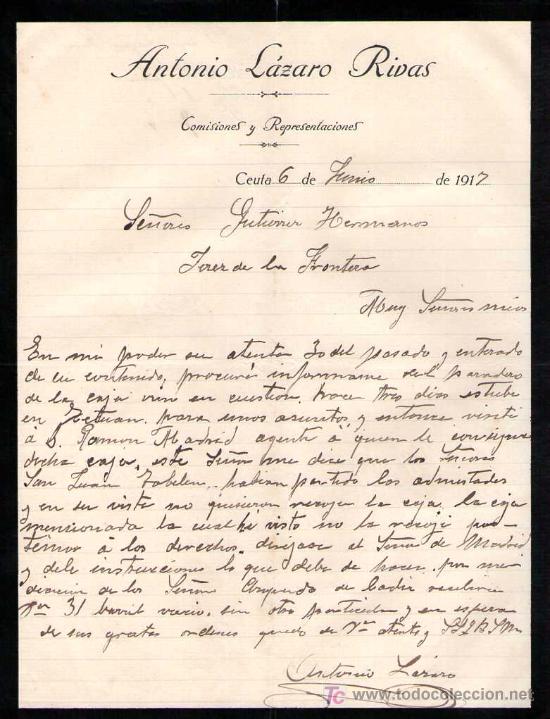 Antonio Lázaro Rivas
Comisiones y Representaciones
Ceuta 6 de Junio de 1917
Señores Gutierrez Hermanos
Jerez de la Frontera
Muy Señores mios
En mi poder su atenta 30 del pasado y enterado
de su contenido, procuré informarme del paradero
de la caja vino en cuestion, hace tres dias estube
en Tetuan, para unos asuntos, y entonce visité
á D. Ramon Madrid agente á quien le
dicha caja, este Señor me dice que los Señores
San Juan habian partido las amistades
y en su vista no quisieron recoger la caja, la caja
mencionada la cual he visto no la recojé por
temor á los derechos, dirijase al Señor de Madrid
y dele instrucciones lo que deba de hacer, por me
diacion de los Señores de Cadiz recibirá
31 barril vacio, sin otro particular y en espera
de sus gratas ordenes quedo de Vds atento y
Antonio Lázaro
TC www.todocoleccion.net